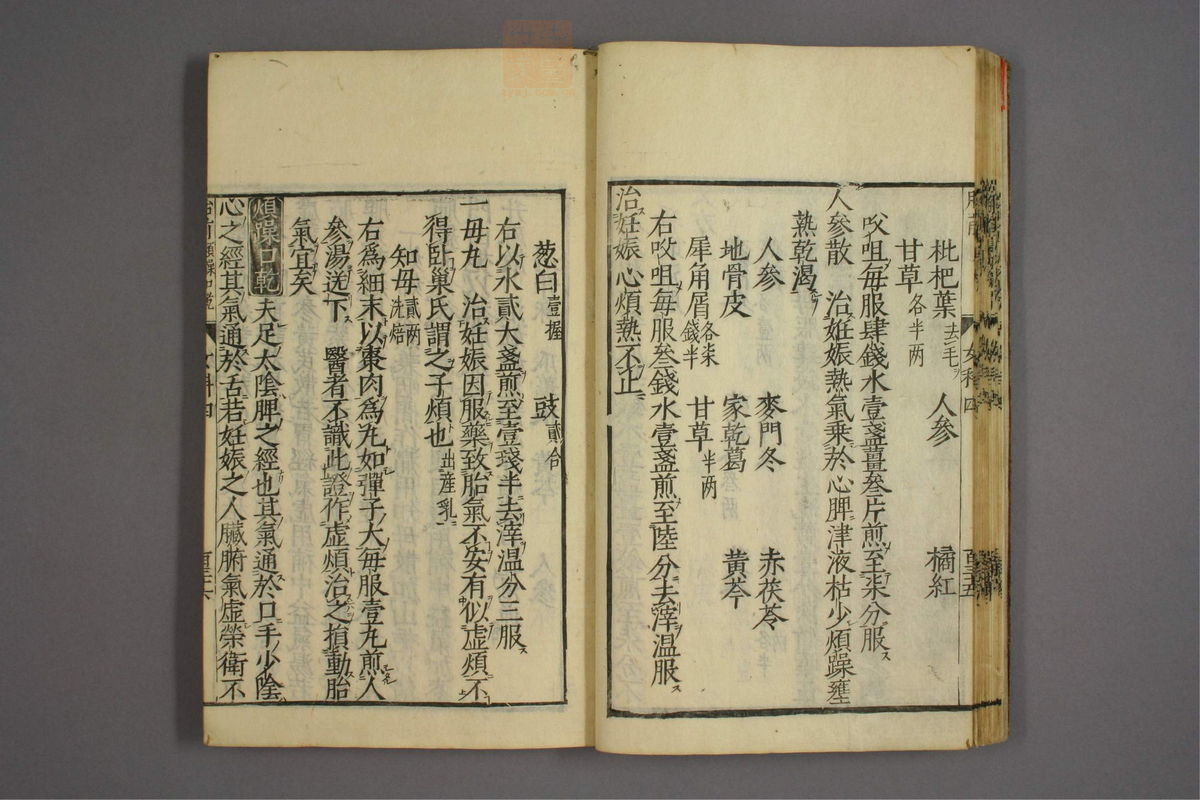 枇杷葉去毛 人參 橘紅
甘草各半兩
㕮咀每服肆錢水壹盞薑叁片煎至柒分服
人參散 治姙娠熱氣乗於心脾津液枯少煩躁壅
熱乾渴
人參 麥門冬 赤茯苓
地骨皮 家乾葛 黄芩
犀角屑各柒錢半 甘草半兩
右㕮咀每服叁錢水壹盞煎至陸分去滓温服
治妊娠心煩熱不止
葱白壹握 豉貳合
右以水貳大盞煎至壹琖半去滓温分三服
一母丸 治妊娠因服藥致胎氣不安有似虚煩不
得卧巢氏謂之子煩也出産乳
知母貳兩洗焙
右爲細末以棗肉爲丸如彈子大每服壹丸煎人
參湯送下 醫者不識此證作虚煩治之損動胎
氣宜矣
煩躁口乾 夫足太陰脾之經也其氣通於口手少陰
心之經其氣通於舌若妊娠之人臟腑氣虚榮衛不
女科四